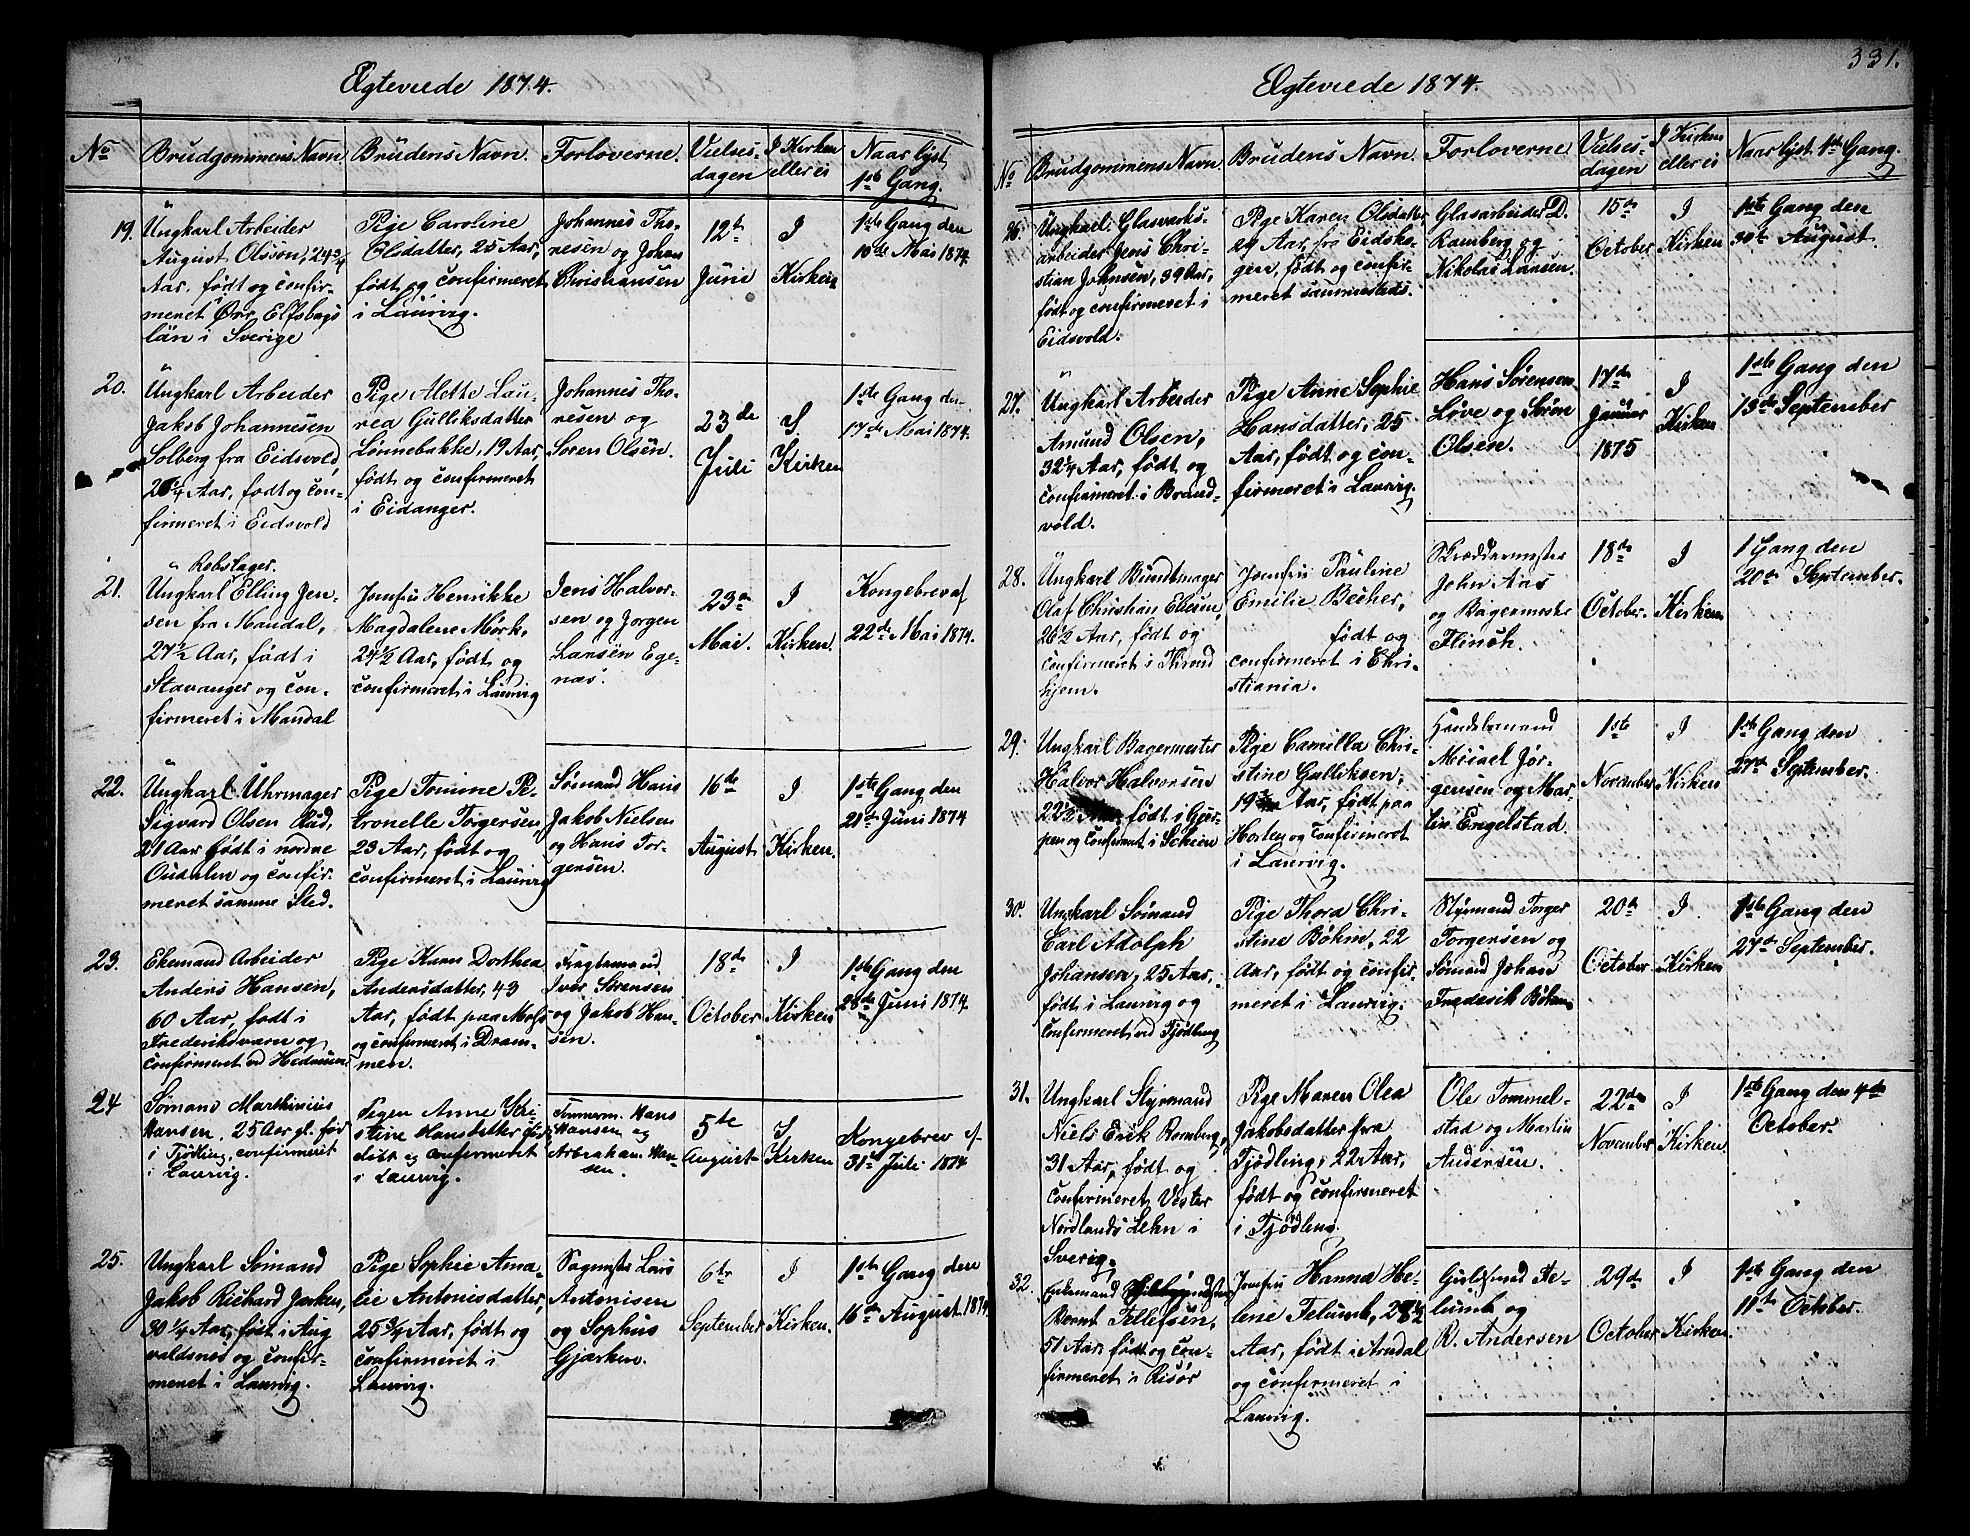 Ægteviede 1874.
No
Brudgommens Navn
Brudens Navn.
Forloverne.
Vielses-
dagen
I Kirken
eller ei
Naar lyst
1ste Gang.
19.
Ungkarl Arbeider
August Olson, 24 3/4
Aar, født og confir-
meret Örs Elfsborgs
län i Sverige
Pige Caroline
Olsdatter, 25 Aar,
født og confirmeret
i Laurvig.
Johannes Tho-
resen og Johan
Christiansen
12te
Juni
I
Kirken
1ste Gang den
10de Mai 1874.
20.
Ungkarl Arbeider
Jakob Johannesen
Solberg fra Eidsvold,
26 1/4 Aar, født og con-
firmeret i Eidsvold
Pige Alette Lau-
rea Gulliksdatter
Lønnebakke, 19 Aar,
født og confirmeret
i Eidanger.
Johannes Tho-
resen og
Søren Olsen.
23de
Juli
I
Kirken
1ste Gang den
17de Mai 1874.
21.
Rebslager.
Ungkarl Elling Jen-
sen fra Mandal,
27 1/2 Aar, født i
Stavanger og con-
firmeret i Mandal
Jomfru Henrikke
Magdalene Mørk,
24 1/2 Aar, født og
confirmeret i Laurvig
Jens Halvor-
sen og Jørgen
Larsen Ege-
næs.
23de
Mai.
I
Kirken.
Kongebrev af
22de Mai 1874.
22.
Ungkarl Uhrmager
Sigvard Olsen Rud,
21 Aar født i nordre
Oudalen og confir-
meret samme Sted.
Pige Tomine Pe-
tronelle Torgersen,
23 Aar, født og
confirmeret i Laurvig
Sømand Hans
Jakob Nielsen
og Hans Tor-
gersen.
16de
August.
I
Kirken.
1ste Gang den
21de Juni 1874
23.
Ekemand Arbeider
Anders Hansen,
60 Aar, født i
Frederiksværn og
confirmeret ved Hedrum
Pige Karen Dorthea
Andersdatter, 43
Aar, født paa Moss
og confirmeret i Dram-
men.
Fragtemand
Iver Sørensen
og Jakob Han-
sen.
18de
October
I
Kirken
1ste Gang den
28de Juni 1874.
24
Sømand Marthinius
Hansen, 25 Aar gl. før
i Tjølling, confirmeret
i Laurvig.
Pigen Anne Kri-
stine Hansdatter
og confirmeret
i Laurvig.
Tømmerm. Hans
Hansen og
Abraham Han-
sen.
5te
August
I
Kirken
Kongebrev af
31te Juli 1874
25.
Ungkarl Sømand
Jakob Richard Jarken,
30 1/4 Aar, født i Aug
valdsnes og confir-
meret i Laurvig.
Pige Sophie Ama-
lie Antonisdatter,
25 3/4 Aar, født og
confirmeret i
Laurvig.
Sagmester Lars
Antonisen
og Sophus
Gjarken.
6te
September
I
Kirken.
1ste Gang den
16de August 1874
331.
Ægteviede 1874.
No
Brudgommens Navn.
Brudens Navn.
Forloverne
Vielses-
dagen
I Kirken
eller ei
Naar lyst 1te Gang.
26.
Ungkarl Glasværks-
arbeider Jens Chri-
stian Johnsen, 39 Aar,
født og confirmeret i
Eidsvold.
Pige Karen Olsdatter,
29 Aar, fra Eidsko-
gen, født og confir-
meret sammesteds.
Glasarbeider D.
Ramberg og
Nikolai Larsen.
15de
October
I
Kirken
1ste Gang den
30te August.
27.
Ungkarl Arbeider
Amund Olsen,
32 1/4 Aar, født og
confirmeret i Brand-
vold.
Pige Anne Sophie
Hansdatter, 25
Aar, født og con-
firmeret i Laurvig.
Hans Sørensen
Løve og Søren
Olsen.
17de
Januar
1875
I
Kirken
1ste Gang den
13de September
28.
Ungkarl Buntmager
Olaf Christian Ellersen,
26 1/2 Aar, født og
confirmeret i Thrond
hjem.
Jomfru Pauline
Emilie Becher,
født og
confirmeret i Chri-
stiania.
Skræddermester
John Aas
og Bagermester
Flinch.
18de
October.
I
Kirken
1 Gang den
20de September.
29.
Ungkarl Bagermester
Halvor Halvorsen
22 1/2 Aar født i Gjer-
pen og confirmeret i Schien
Pige Camilla Chri-
stine Gulliksen,
19 Aar, født paa
Horten og confirmeret
i Laurvig.
Handelsmand
Michael Jør-
gensen og Mar-
tin Engelstad.
1ste
November
I
Kirken.
1ste Gang den
27de September.
30.
Ungkarl Sømand
Carl Adolph
Johansen, 25 Aar,
født i Laurvig og
confirmeret ved Tjødling
Pige Thora Chri-
stine Bøhm, 22
Aar, født og confir.
meret i Laurvig.
Styrmand Torger
Torgersen og
Sømand Johan
Frederik Bøhm
20de
October
I
Kirken
1ste Gang den
27de September.
31.
Ungkarl Styrmand
Niels Erik Romberg,
31 Aar, født og
confirmeret Vester
Nordlands Lehn i
Sverig.
Pige Maren Olea
Jakobsdatter fra
Tjødling, 22 Aar,
født og confirmeret
i Tjødling.
Ole Tommel-
stad og Martin
Andersen.
22de
November
I
Kirken.
1ste Gang den 4de
October.
32.
Enkemand
Bernt Tellefsen,
51 Aar, født og con-
firmeret i Risør
Jomfru Hanna He-
lene Telumb, 28 1/2
Aar, født i Arendal
og confirmeret i
Laurvig.
Guldsmed Te-
lumb og
R. Andersen
29de
October
I
Kirken.
1ste Gang den
11te October.